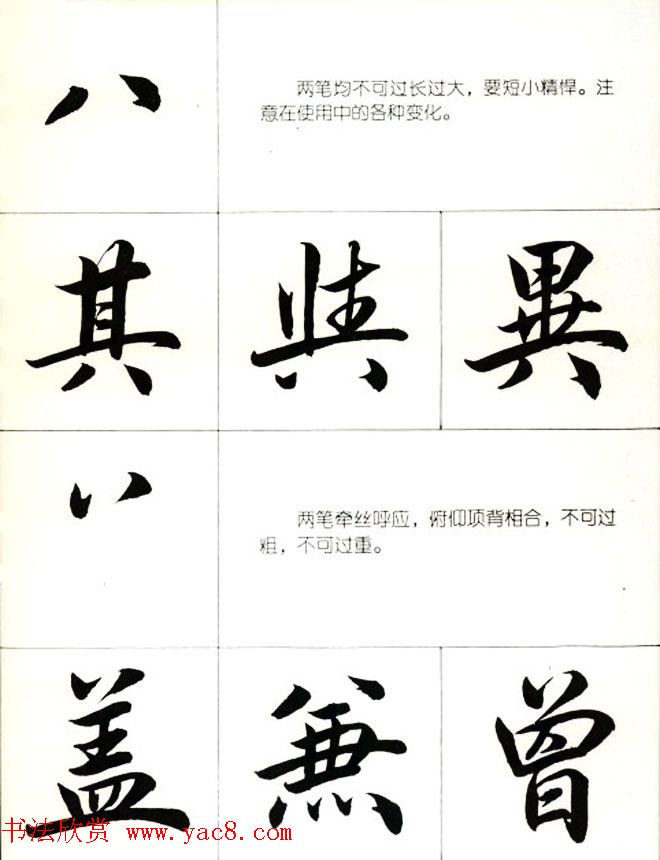 八
两笔均不可过长过大，要短小精悍。注
意在使用中的各种变化。
其 典 異
丷
两笔牵丝呼应，俯仰项背相合，不可过
粗，不可过重。
盖 無 曾
书法欣赏 www.yac8.com